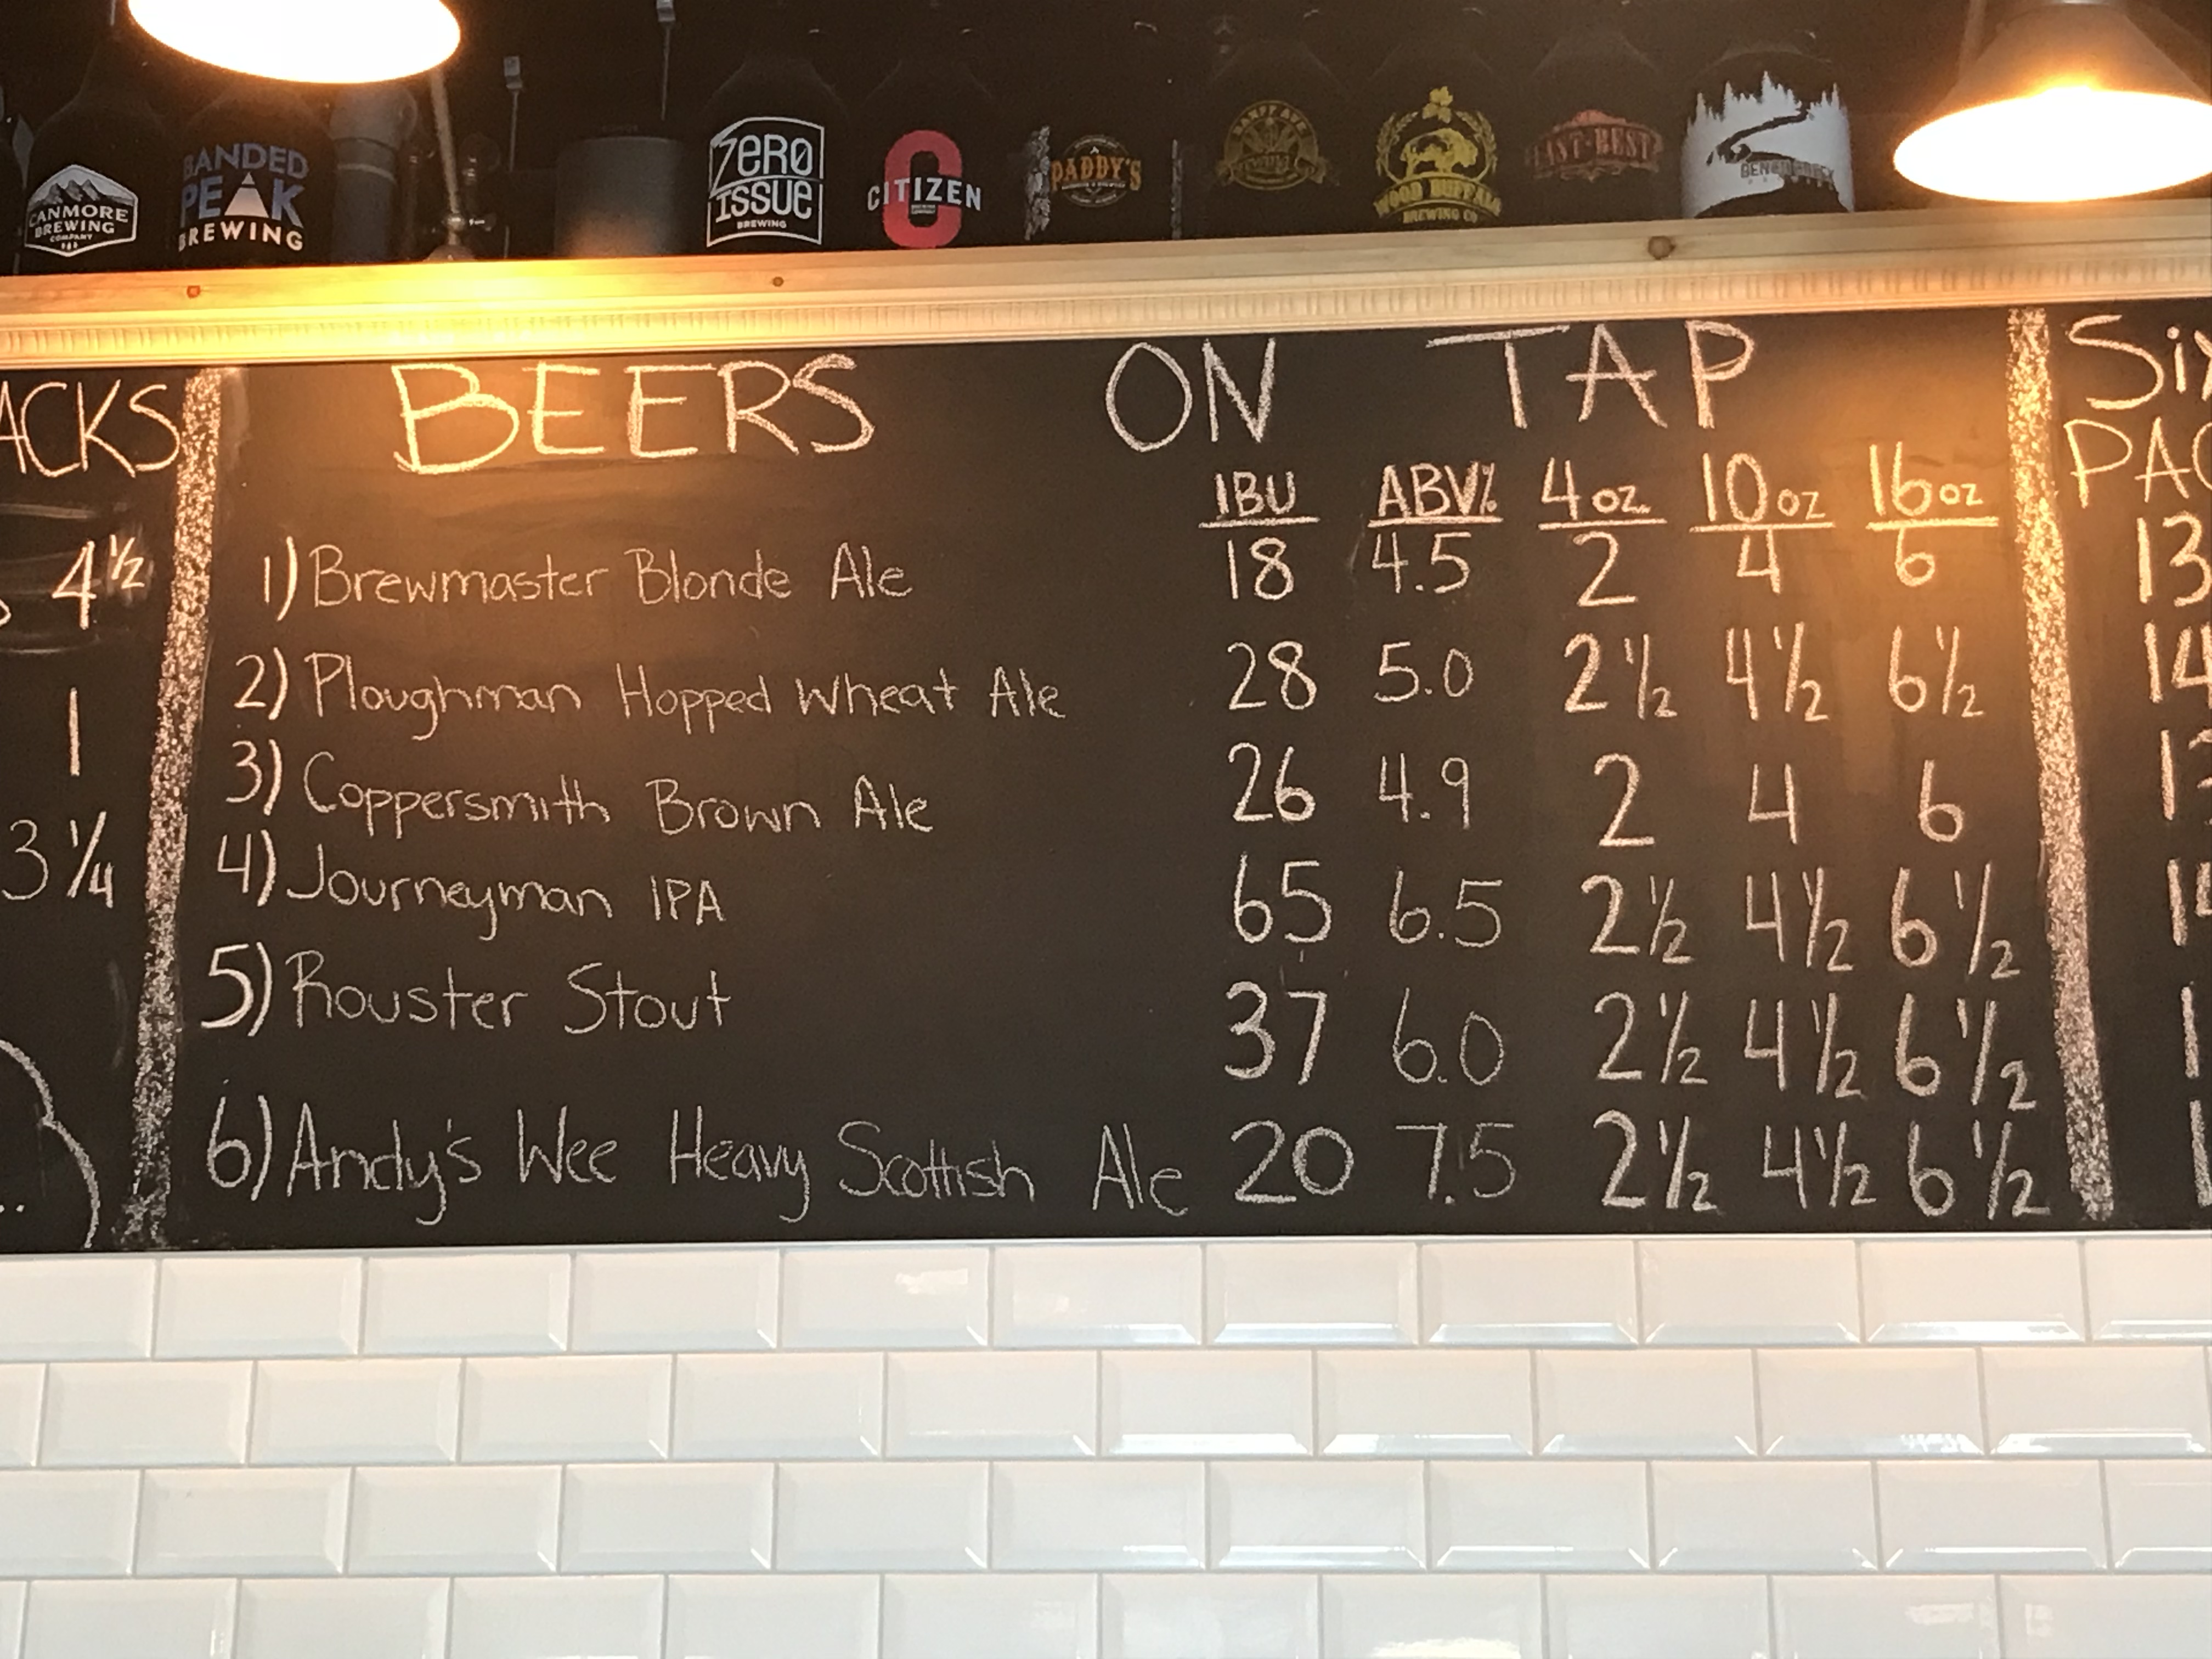 CANMORE
BREWING
COMPANY
BANDED
PEAK
BREWING
ZERO
ISSUE
BREWING
CITIZEN
PADDY'S
BANFF AVE
BREWING
WOOD BUFFALO
BREWING CO
LAST BEST
ACKS
4 1/2
1
3 1/4
BEERS ON TAP
IBU ABV% 4oz. 10oz 16oz
1) Brewmaster Blonde Ale 18 4.5 2 4 6
2) Ploughman Hopped Wheat Ale 28 5.0 2 1/2 4 1/2 6 1/2
3) Coppersmith Brown Ale 26 4.9 2 4 6
4) Journeyman IPA 65 6.5 2 1/2 4 1/2 6 1/2
5) Rouster Stout 37 6.0 2 1/2 4 1/2 6 1/2
6) Andy's Wee Heavy Scottish Ale 20 7.5 2 1/2 4 1/2 6 1/2
Six
PAC
13
14